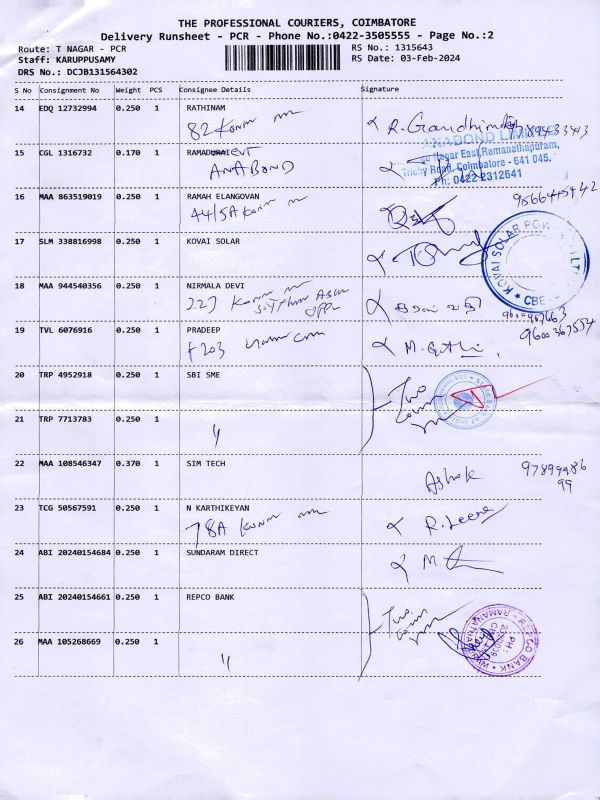 THE PROFESSIONAL COURIERS, COIMBATORE
Delivery Runsheet - PCR - Phone No.:0422-3505555 - Page No.:2
Route: T NAGAR - PCR RS No.: 1315643
Staff: KARUPPUSAMY RS Date: 03-Feb-2024
DRS No.: DCJB131564302
S No Consignment No Weight PCS Consignee Details Signature
14 EDQ 12732994 0.250 1 RATHINAM
82
R. Gandhimathi
15 CGL 1316732 0.170 1
ANABOND
ANABOND LIMITED
Nagar East, Ramanathapuram,
Trichy Road, Coimbatore - 641 045.
Ph: 0422-2312641
16 MAA 863519019 0.250 1 RAMAH ELANGOVAN
44/5A
17 SLM 338816998 0.250 1 KOVAI SOLAR
KOVAI SOLAR
CBE
18 MAA 944540356 0.250 1 NIRMALA DEVI
227
19 TVL 6076916 0.250 1 PRADEEP
F203
9600367534
20 TRP 4952918 0.250 1 SBI SME
Two
21 TRP 7713783 0.250 1
22 MAA 108546347 0.370 1 SIM TECH
Ashok
23 TCG 50567591 0.250 1 N KARTHIKEYAN
78A
R. Leena
24 ABI 20240154684 0.250 1 SUNDARAM DIRECT
25 ABI 20240154661 0.250 1 REPCO BANK
Two
REPCO BANK
26 MAA 105268669 0.250 1